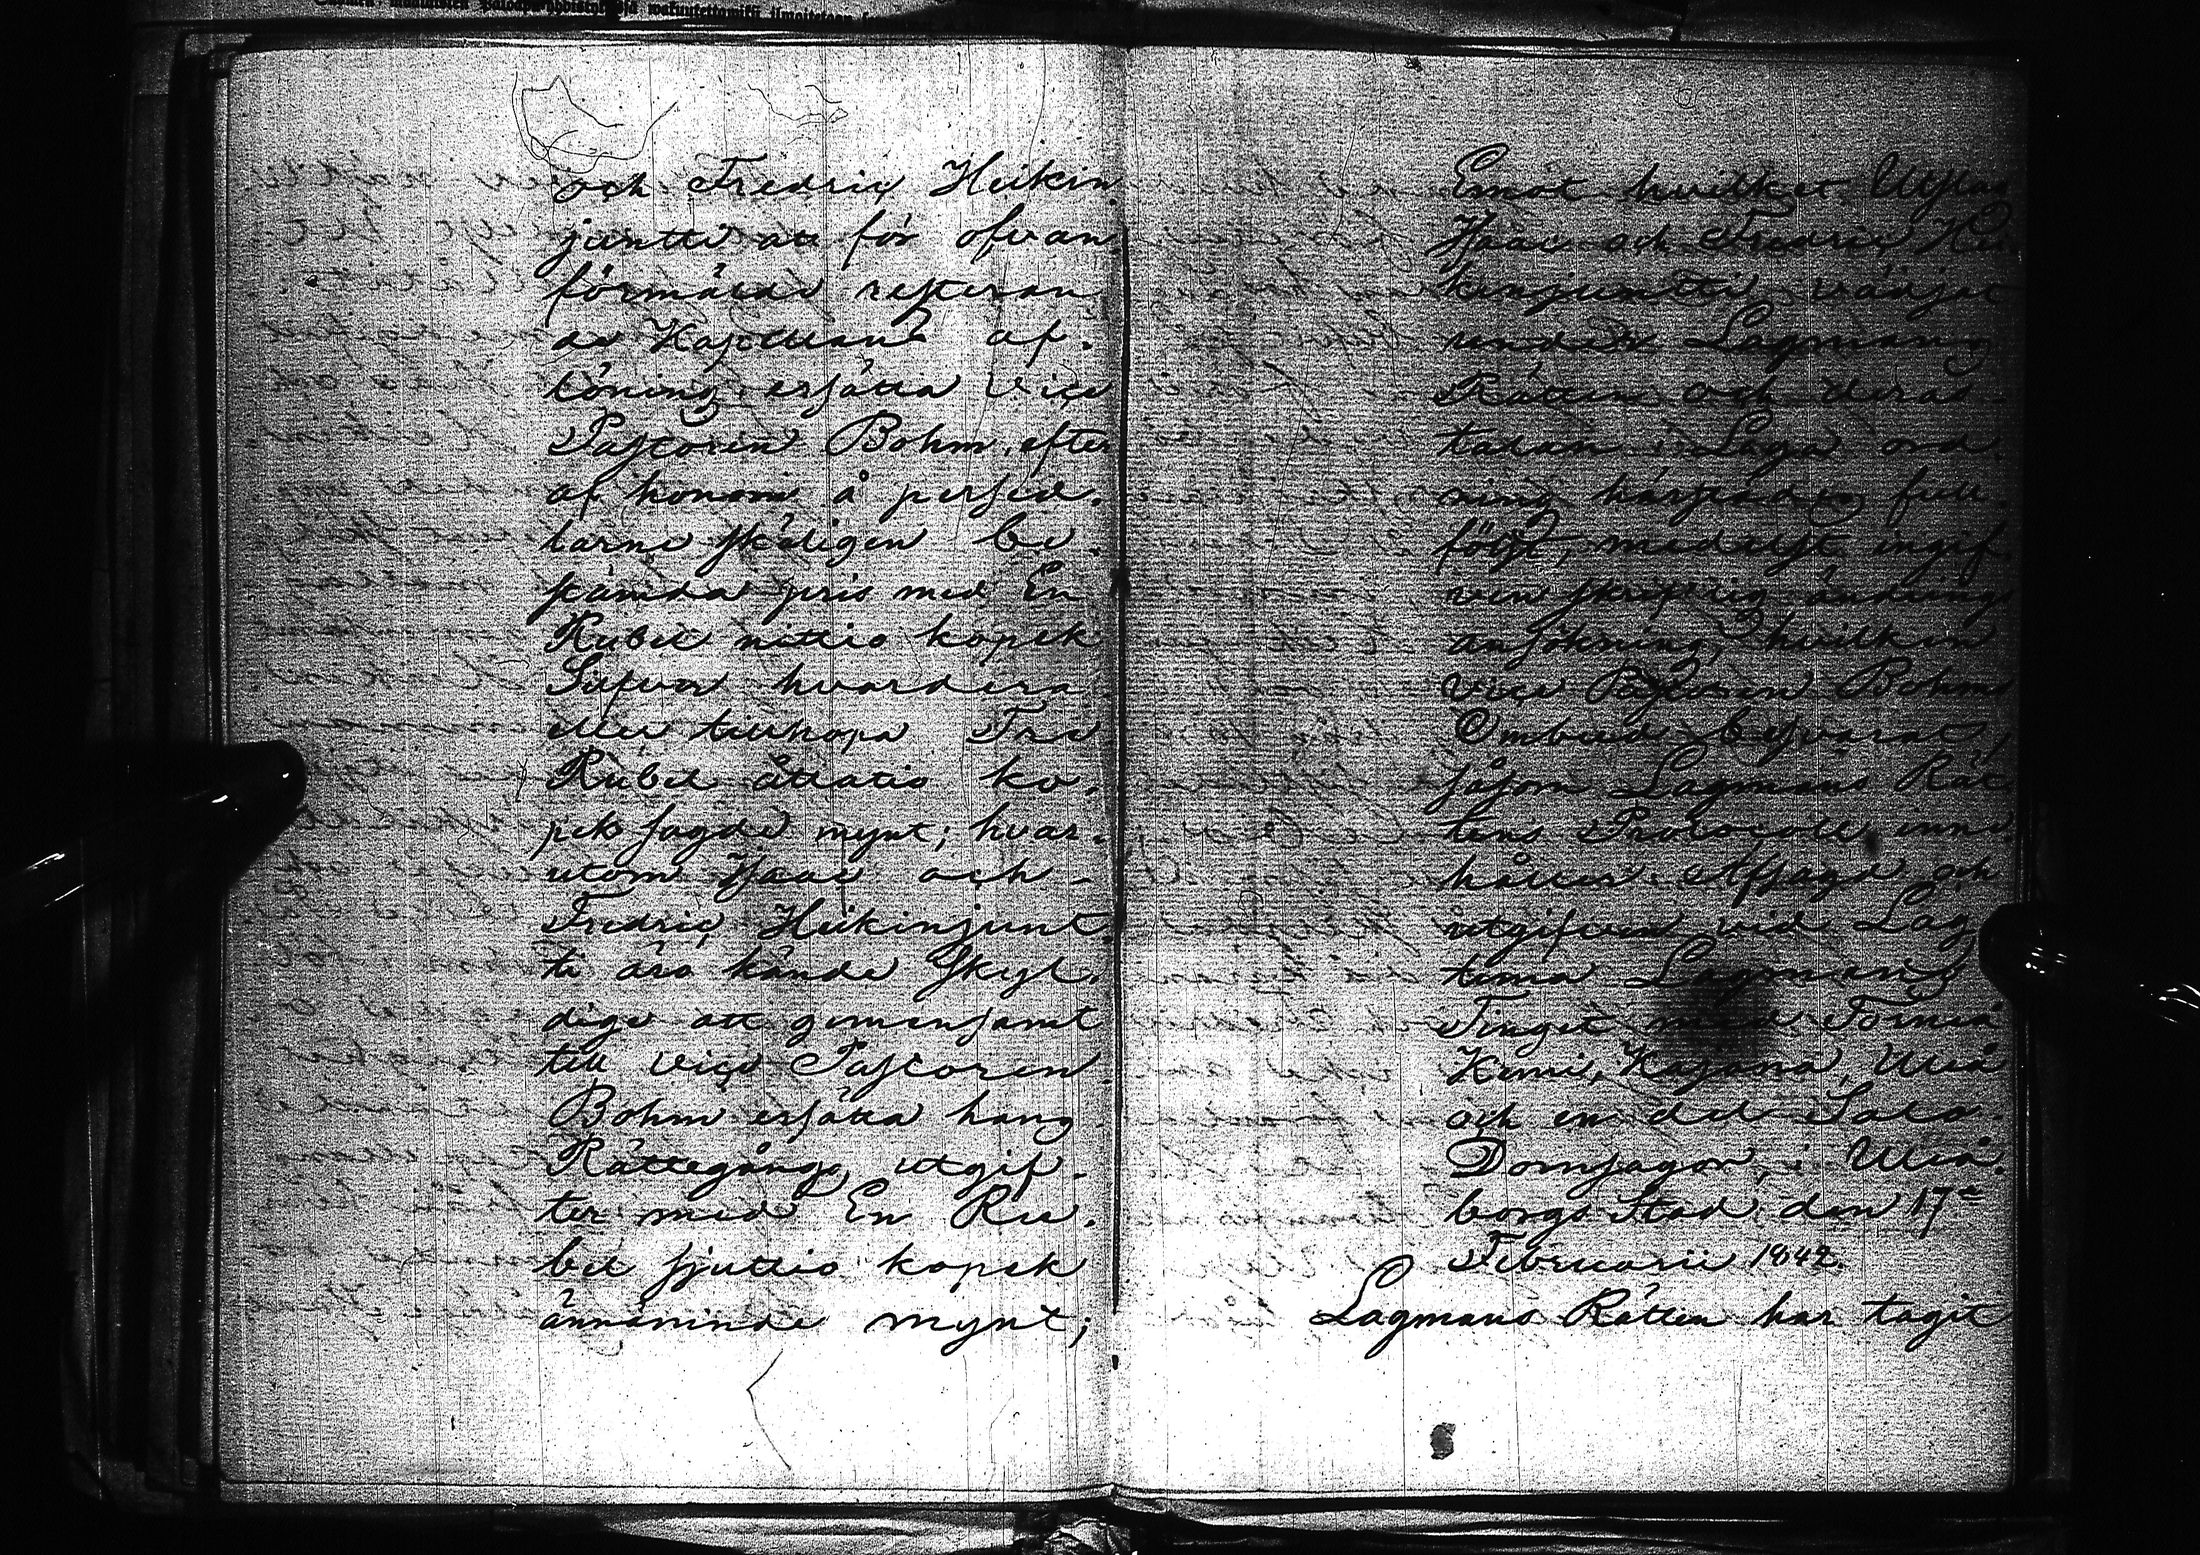 och Fredric Heikin
juntti att för ofvan
förmälde resteran
de Kapellans af-
löning ersätta Vice
Pastoren Bohm, efter
af honom å persed-
larne skäligen be-
stämda pris med En
Rubel nittio kopek
Silfver hvardera
eller tillhopa Tre
Rubel åttatio ko-
pek sagde mynt; hvar-
utom Isaac och
Fredric Heikinjunt-
ti äro kände skyl-
dige att gemensamt
till vice Pastoren
Bohm ersätta hans
Rättegångs utgif-
ter med En Ru-
bel sjuttio kopek
ännämnde mynt;
Emot hvilket Utslag
Isaac och Fredric Hei-
kinjuntti vädjat
under Lagmans
Rätten och deras
talan i Laga ord-
ning härstädes full-
följt, medelst ingif-
ven skriftlig ändrings
ansökning, hvilken
Vice Pastoren Bohms
Ombud besvarat,
såsom Lagmans Rät-
tens Protocoll inne-
håller. Afsagd och
utgifven vid Lag-
tima Lagmans
Tinget med Torneå
Kemi, Kajana, Uleå
och en del Salo
Domsagor, i Uleå-
borgs Stad, den 17de
Februarii 1842.
Lagmans Rätten har tagit